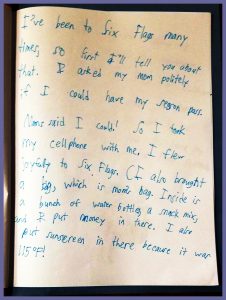 I've been to Six Flags many
times, so first I'll tell you about
that. I asked my mom politely
if I could have my season pass.
Moms said I could! So I took
my cellphone with me. I flew
joyfully to Six Flags. (I also brought
a bag, which is mom's bag. Inside is
a bunch of water bottles, a snack mix,
and I put money in there. I also
put sunscreen in there because it was
115°F!